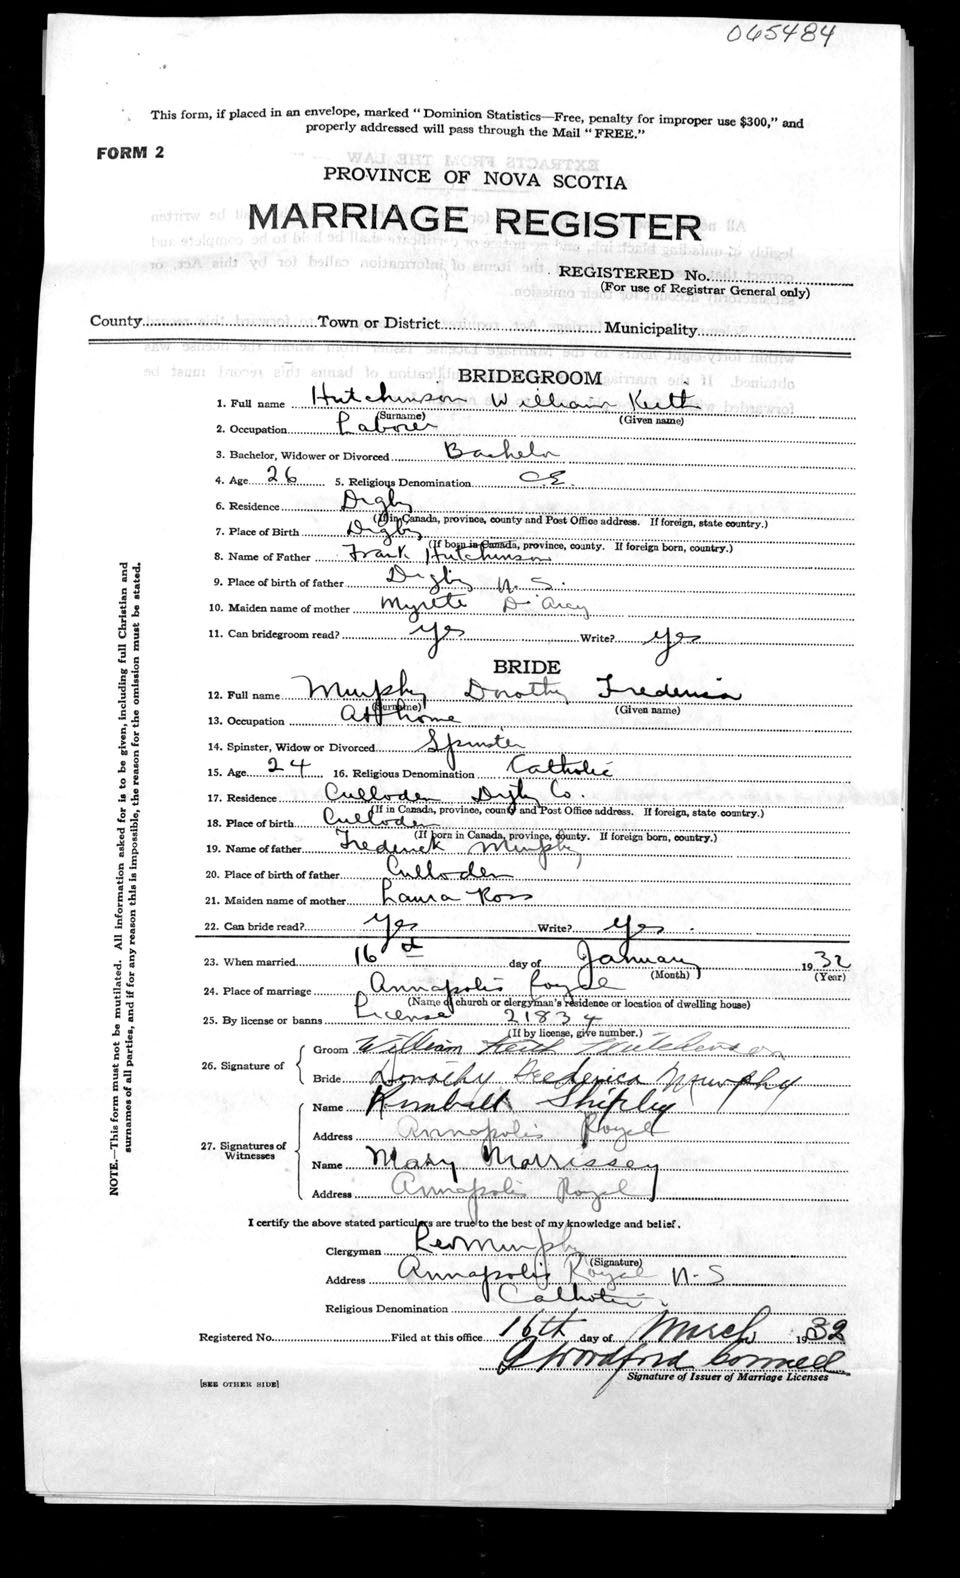 065484
This form, if placed in an envelope, marked "Dominion Statistics—Free, penalty for improper use $300," and
properly addressed will pass through the Mail "FREE."
FORM 2
PROVINCE OF NOVA SCOTIA
MARRIAGE REGISTER
REGISTERED No.
(For use of Registrar General only)
County Town or District Municipality
BRIDEGROOM
1. Full name Hutchinson William Keith
(Surname) (Given name)
2. Occupation Laborer
3. Bachelor, Widower or Divorced Bachelor
4. Age 26 5. Religious Denomination CE.
6. Residence Digby
(If in Canada, province, county and Post Office address. If foreign, state country.)
7. Place of Birth Digby
(If born in Canada, province, county. If foreign born, country.)
8. Name of Father Frank Hutchinson
9. Place of birth of father Digby N.S.
10. Maiden name of mother Myrtte D'Arcy
11. Can bridegroom read? Yes Write? Yes
BRIDE
12. Full name Murphy Dorothy Frederica
(Surname) (Given name)
13. Occupation At home
14. Spinster, Widow or Divorced Spinster
15. Age 24 16. Religious Denomination Catholic
17. Residence Culloden Digby Co.
(If in Canada, province, county and Post Office address. If foreign, state country.)
18. Place of birth Culloden
(If born in Canada, province, county. If foreign born, country.)
19. Name of father Frederick Murphy
20. Place of birth of father Culloden
21. Maiden name of mother Laura Ross
22. Can bride read? Yes Write? Yes.
23. When married 16 day of January 1932
(Month) (Year)
24. Place of marriage Annapolis Royal
(Name of church or clergyman's residence or location of dwelling house)
25. By license or banns License 21834
(If by license, give number.)
26. Signature of Groom William Keith Hutchinson
Bride Dorothy Frederica Murphy
27. Signatures of Witnesses Name Kimball Shipley
Address Annapolis Royal
Name Mary Morrissey
Address Annapolis Royal
I certify the above stated particulars are true to the best of my knowledge and belief.
Clergyman Rev Murphy
(Signature)
Address Annapolis Royal N.S
Religious Denomination Catholic
Registered No. Filed at this office 16th day of March 1932
Cornell
Signature of Issuer of Marriage Licenses
[SEE OTHER SIDE]
NOTE.—This form must not be mutilated. All information asked for is to be given, including full Christian and
surnames of all parties, and if for any reason this is impossible, the reason for the omission must be stated.